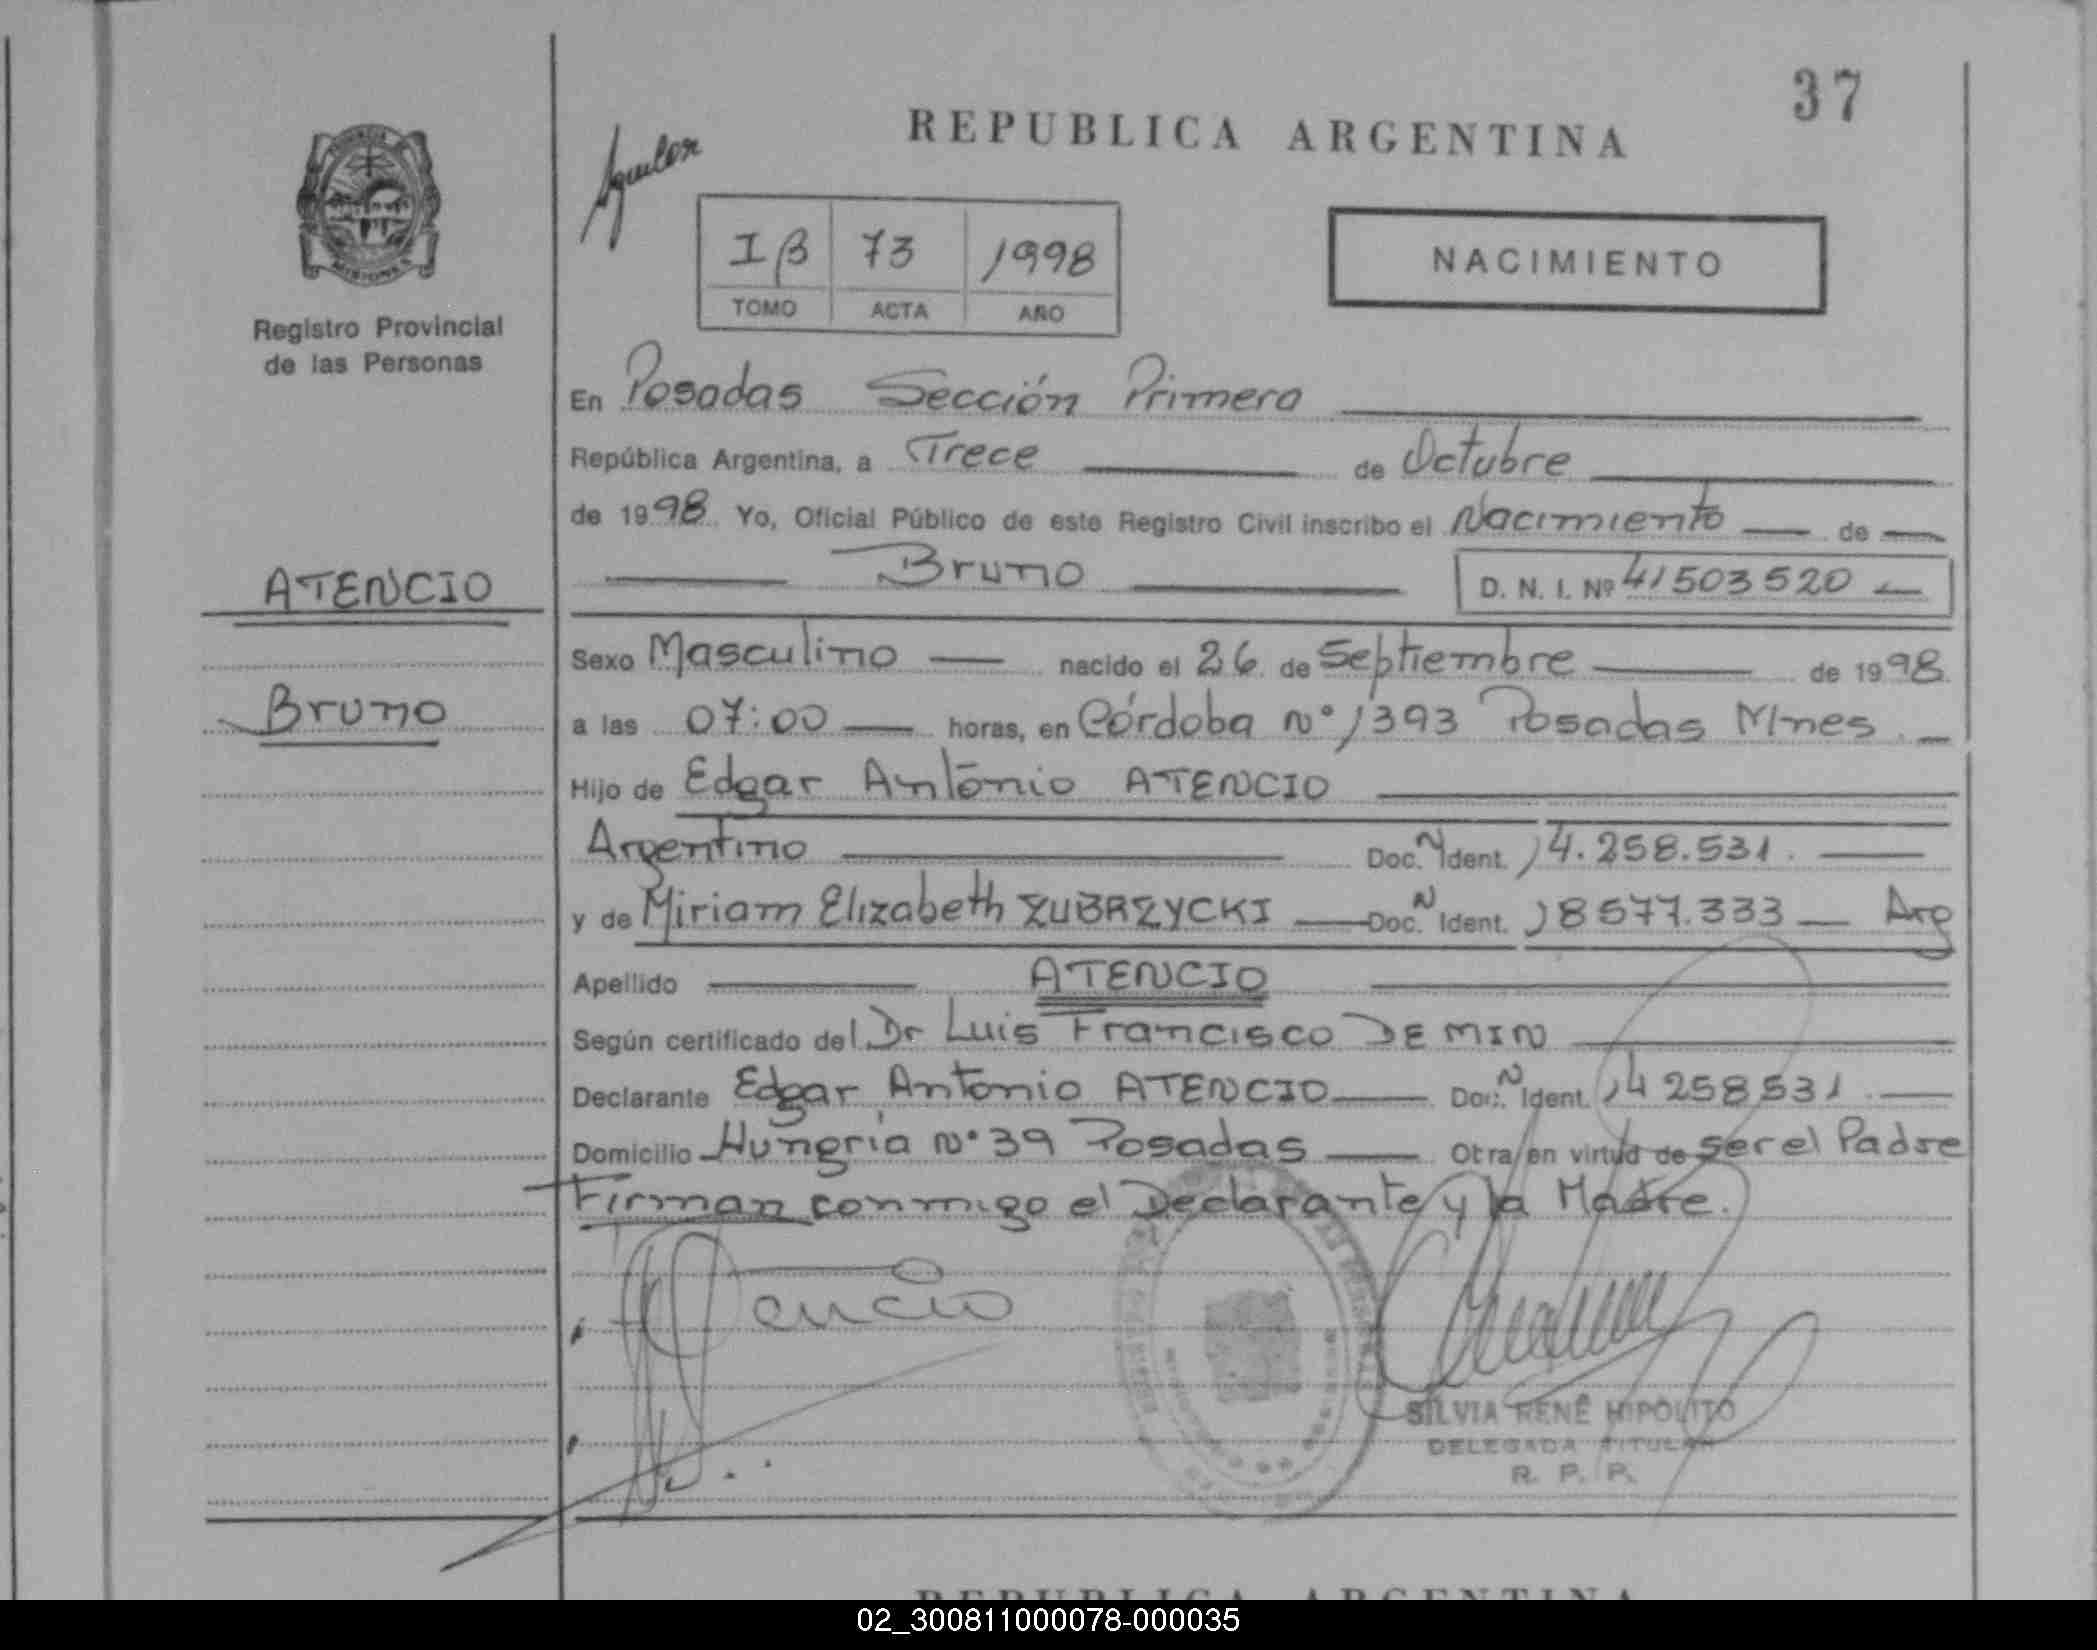 37
REPUBLICA ARGENTINA
Aguilar
Iβ 73 1998
TOMO ACTA AÑO
NACIMIENTO
MISIONES
Registro Provincial
de las Personas
En Posadas Sección Primera
República Argentina, a Trece de Octubre
de 1998 Yo, Oficial Público de este Registro Civil inscribo el Nacimiento de
Bruno D. N. I. Nº 41503520
ATENCIO
Sexo Masculino nacido el 26 de Septiembre de 1998
Bruno
a las 07:00 horas, en Córdoba Nº 1393 Posadas Mnes.
Hijo de Edgar Antonio ATENCIO
Argentino Doc. N Ident. 14.258.531.
y de Miriam Elizabeth ZUBRZYCKI Doc. N Ident. 18577.333 Arg
Apellido ATENCIO
Según certificado del Dr Luis Francisco DE MIN
Declarante Edgar Antonio ATENCIO Doc. N Ident. 14258531.
Domicilio Hungría Nº 39 Posadas Otra en virtud de ser el Padre
Firman conmigo el Declarante y la Madre.
SILVIA RENÉ HIPOLITO
DELEGADA TITULAR
R. P. P.
REPUBLICA ARGENTINA
02_300811000078-000035